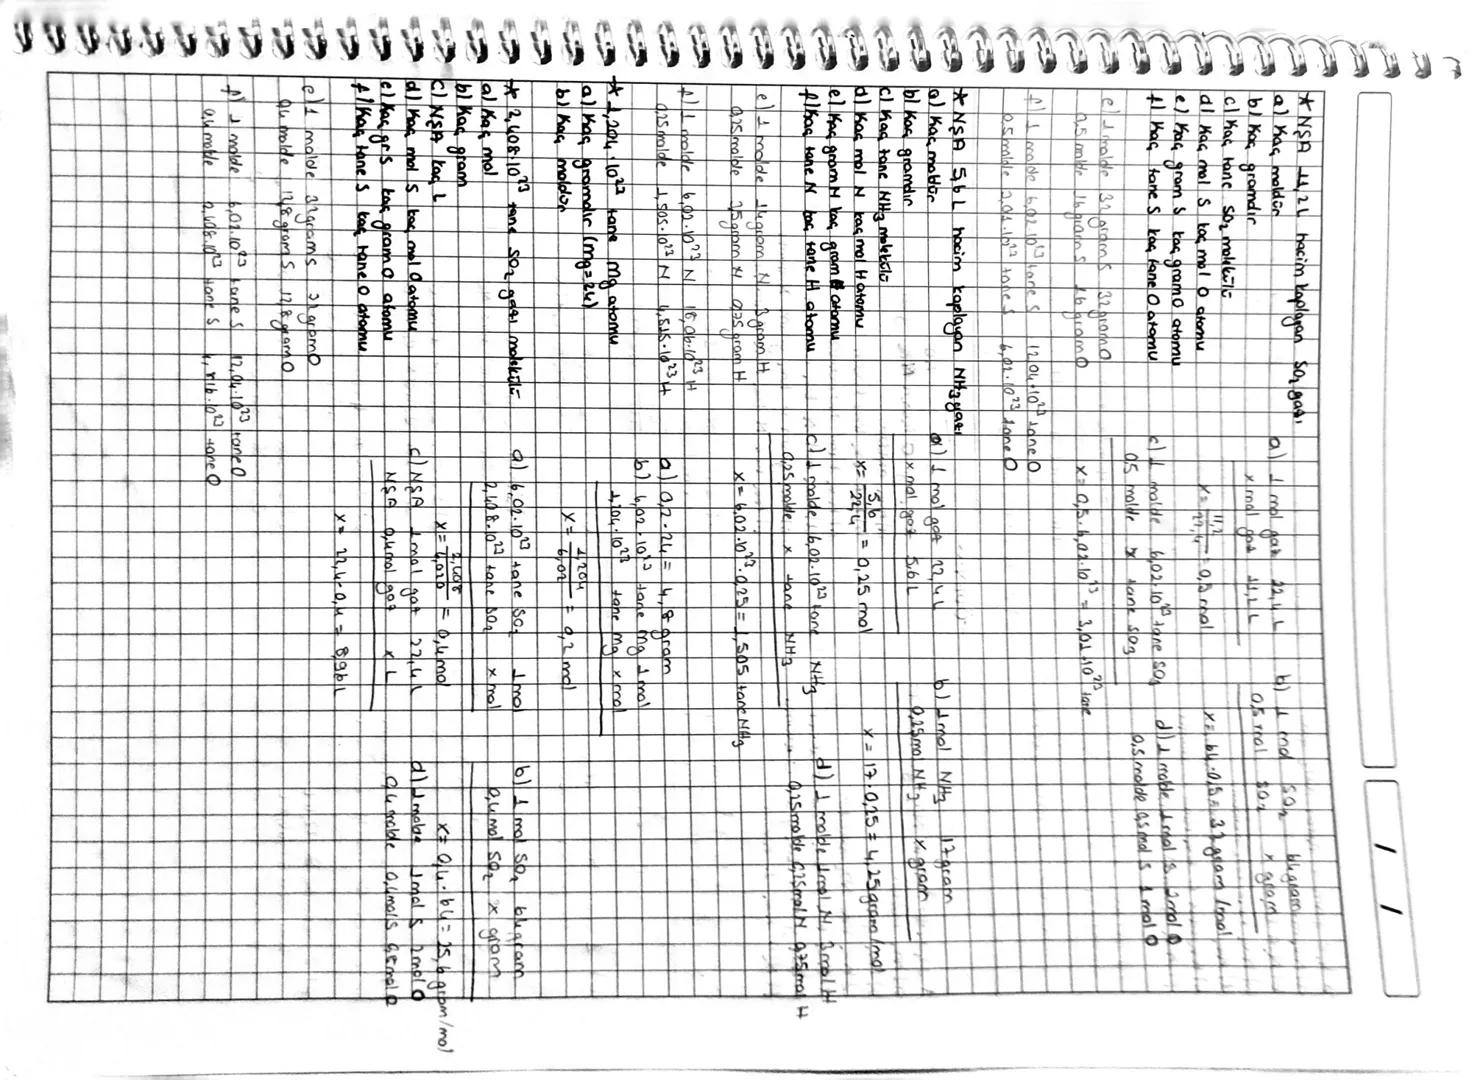 * NŞA 11,2 L hacim kaplayan SO₂ gazı
a) Kaç moldür
b) Kaç gramdır
c) Kaç tane SO₂ molekülü
d) Kaç mol S kaç mol O atomu
e) Kaç gram S kaç gram O atomu
f) Kaç tane S kaç tane O atomu
a) 1 mol gaz 22,4 L
x mol gaz 11,2 L
x = 11,2/22,4 = 0,5 mol
b) 1 mol SO₂ 64 gram
0,5 mol SO₂ x gram
x = 64.0,5 = 32 gram/mol
c) 1 molde 6,02.10²³ tane SO₂
0,5 molde x tane SO₂
x = 0,5.6,02.10²³ = 3,01.10²³ tane
d) 1 molde 1 mol S 2 mol O
0,5 molde 0,5 mol S 1 mol O
e) 1 molde 32 gram S 32 gram O
0,5 molde 16 gram S 16 gram O
f) 1 molde 6,02.10²³ tane S 12,04.10²³ tane O
0,5 molde 3,01.10²³ tane S 6,02.10²³ tane O
* NŞA 5,6 L hacim kaplayan NH₃ gazı
a) Kaç moldür
b) Kaç gramdır
c) Kaç tane NH₃ molekülü
d) Kaç mol N kaç mol H atomu
e) Kaç gram N kaç gram H atomu
f) Kaç tane N kaç tane H atomu
a) 1 mol gaz 22,4 L
x mol gaz 5,6 L
x = 5,6/22,4 = 0,25 mol
b) 1 mol NH₃ 17 gram
0,25 mol NH₃ x gram
x = 17.0,25 = 4,25 gram/mol
c) 1 molde 6,02.10²³ tane NH₃
0,25 molde x tane NH₃
x = 6,02.10²³.0,25 = 1,505 tane NH₃
d) 1 molde 1 mol N 3 mol H
0,25 molde 0,25 mol N 0,75 mol H
e) 1 molde 14 gram N 3 gram H
0,25 molde 3,5 gram N 0,75 gram H
f) 1 molde 6,02.10²³ N 18,06.10²³ H
0,25 molde 1,505.10²³ N 4,515.10²³ H
* 1,204.10²³ tane Mg atomu
a) Kaç gramdır (mg=24)
b) Kaç moldür
a) 0,2.24 = 4,8 gram
b) 6,02.10²³ tane mg 1 mol
1,204.10²³ tane mg x mol
x = 1,204/6,02 = 0,2 mol
* 2,408.10²³ tane SO₂ gazı molekülü
a) Kaç mol
b) Kaç gram
c) NŞA kaç L
d) Kaç mol S kaç mol O atomu
e) Kaç gr S kaç gram O atomu
f) Kaç tane S kaç tane O atomu
a) 6,02.10²³ tane SO₂ 1 mol
2,408.10²³ tane SO₂ x mol
x = 2,408/6,020 = 0,4 mol
b) 1 mol SO₂ 64 gram
0,4 mol SO₂ x gram
x = 0,4.64 = 25,6 gram/mol
c) NŞA 1 mol gaz 22,4 L
NŞA 0,4 mol gaz x L
x = 22,4.0,4 = 8,96 L
d) 1 molde 1 mol S 2 mol O
0,4 molde 0,4 mol S mol O
e) 1 molde 32 gram S 32 gram O
0,4 molde 12,8 gram S 12,8 gram O
f) 1 molde 6,02.10²³ tane S 12,04.10²³ tane O
0,4 molde 2,408.10²³ tane S 4,816.10²³ tane O